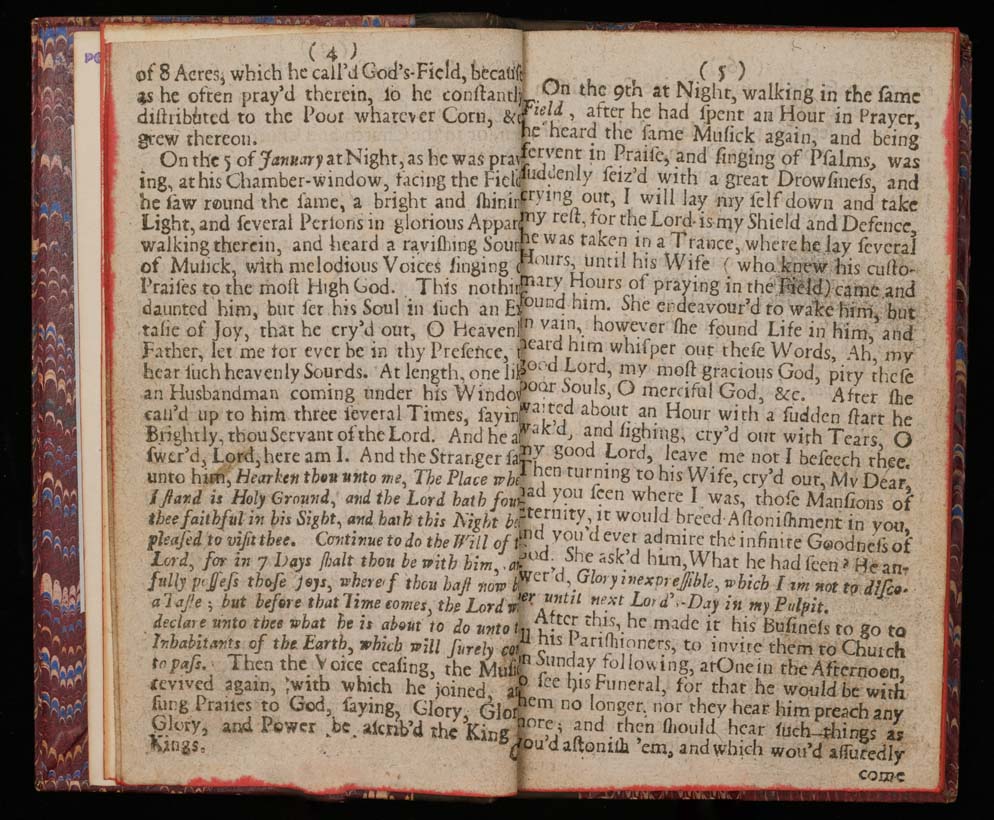 ( 4 )
of 8 Acres, which he call'd God's-Field, becauſe
as he often pray'd therein, ſo he conſtantly
diſtributed to the Poor whatever Corn, &c
grew thereon.
On the 5 of January at Night, as he was pray
ing, at his Chamber-window, facing the Field
he ſaw round the ſame, a bright and ſhinin
Light, and ſeveral Perſons in glorious Appar
walking therein, and heard a raviſhing Soun
of Muſick, with melodious Voices ſinging
Praiſes to the moſt High God. This nothin
daunted him, but ſet his Soul in ſuch an Ex
taſie of Joy, that he cry'd out, O Heavenl
Father, let me for ever be in thy Preſence,
hear ſuch heavenly Sounds. At length, one lik
an Husbandman coming under his Window
call'd up to him three ſeveral Times, ſayin
Brightly, thou Servant of the Lord. And he a
ſwer'd, Lord, here am I. And the Stranger ſa
unto him, Hearken thou unto me, The Place whe
I ſtand is Holy Ground, and the Lord hath foun
thee faithful in his Sight, and hath this Night be
pleaſed to viſit thee. Continue to do the Will of t
Lord, for in 7 Days ſhalt thou be with him, an
fully poſſeſs thoſe Joys, whereof thou haſt now b
a Taſte; but before that Time comes, the Lord w
declare unto thee what he is about to do unto t
Inhabitants of the Earth, which will ſurely co
to paſs. Then the Voice ceaſing, the Muſic
revived again, with which he joined, a
ſung Praiſes to God, ſaying, Glory, Glor
Glory, and Power be aſcrib'd the King
Kings.
( 5 )
On the 9th at Night, walking in the ſame
Field, after he had ſpent an Hour in Prayer,
he heard the ſame Muſick again, and being
fervent in Praiſe, and ſinging of Pſalms, was
ſuddenly ſeiz'd with a great Drowſineſs, and
crying out, I will lay my ſelf down and take
my reſt, for the Lord is my Shield and Defence,
he was taken in a Trance, where he lay ſeveral
Hours, until his Wife (who knew his cuſto-
mary Hours of praying in the Field) came and
found him. She endeavour'd to wake him, but
in vain, however ſhe found Life in him, and
heard him whiſper out theſe Words, Ah, my
good Lord, my moſt gracious God, pity theſe
poor Souls, O merciful God, &c. After ſhe
waited about an Hour with a ſudden ſtart he
wak'd, and ſighing, cry'd out with Tears, O
my good Lord, leave me not I beſeech thee.
Then turning to his Wife, cry'd out, My Dear,
had you ſeen where I was, thoſe Manſions of
Eternity, it would breed Aſtoniſhment in you,
and you'd ever admire the infinite Goodneſs of
God. She ask'd him, What he had ſeen? He an-
ſwer'd, Glory inexpreſſible, which I am not to diſco-
ver until next Lord's-Day in my Pulpit.
After this, he made it his Buſineſs to go to
all his Pariſhioners, to invite them to Church
on Sunday following, at One in the Afternoon,
to ſee his Funeral, for that he would be with
them no longer, nor they hear him preach any
more; and then ſhould hear ſuch things as
wou'd aſtoniſh 'em, and which wou'd aſſuredly
come